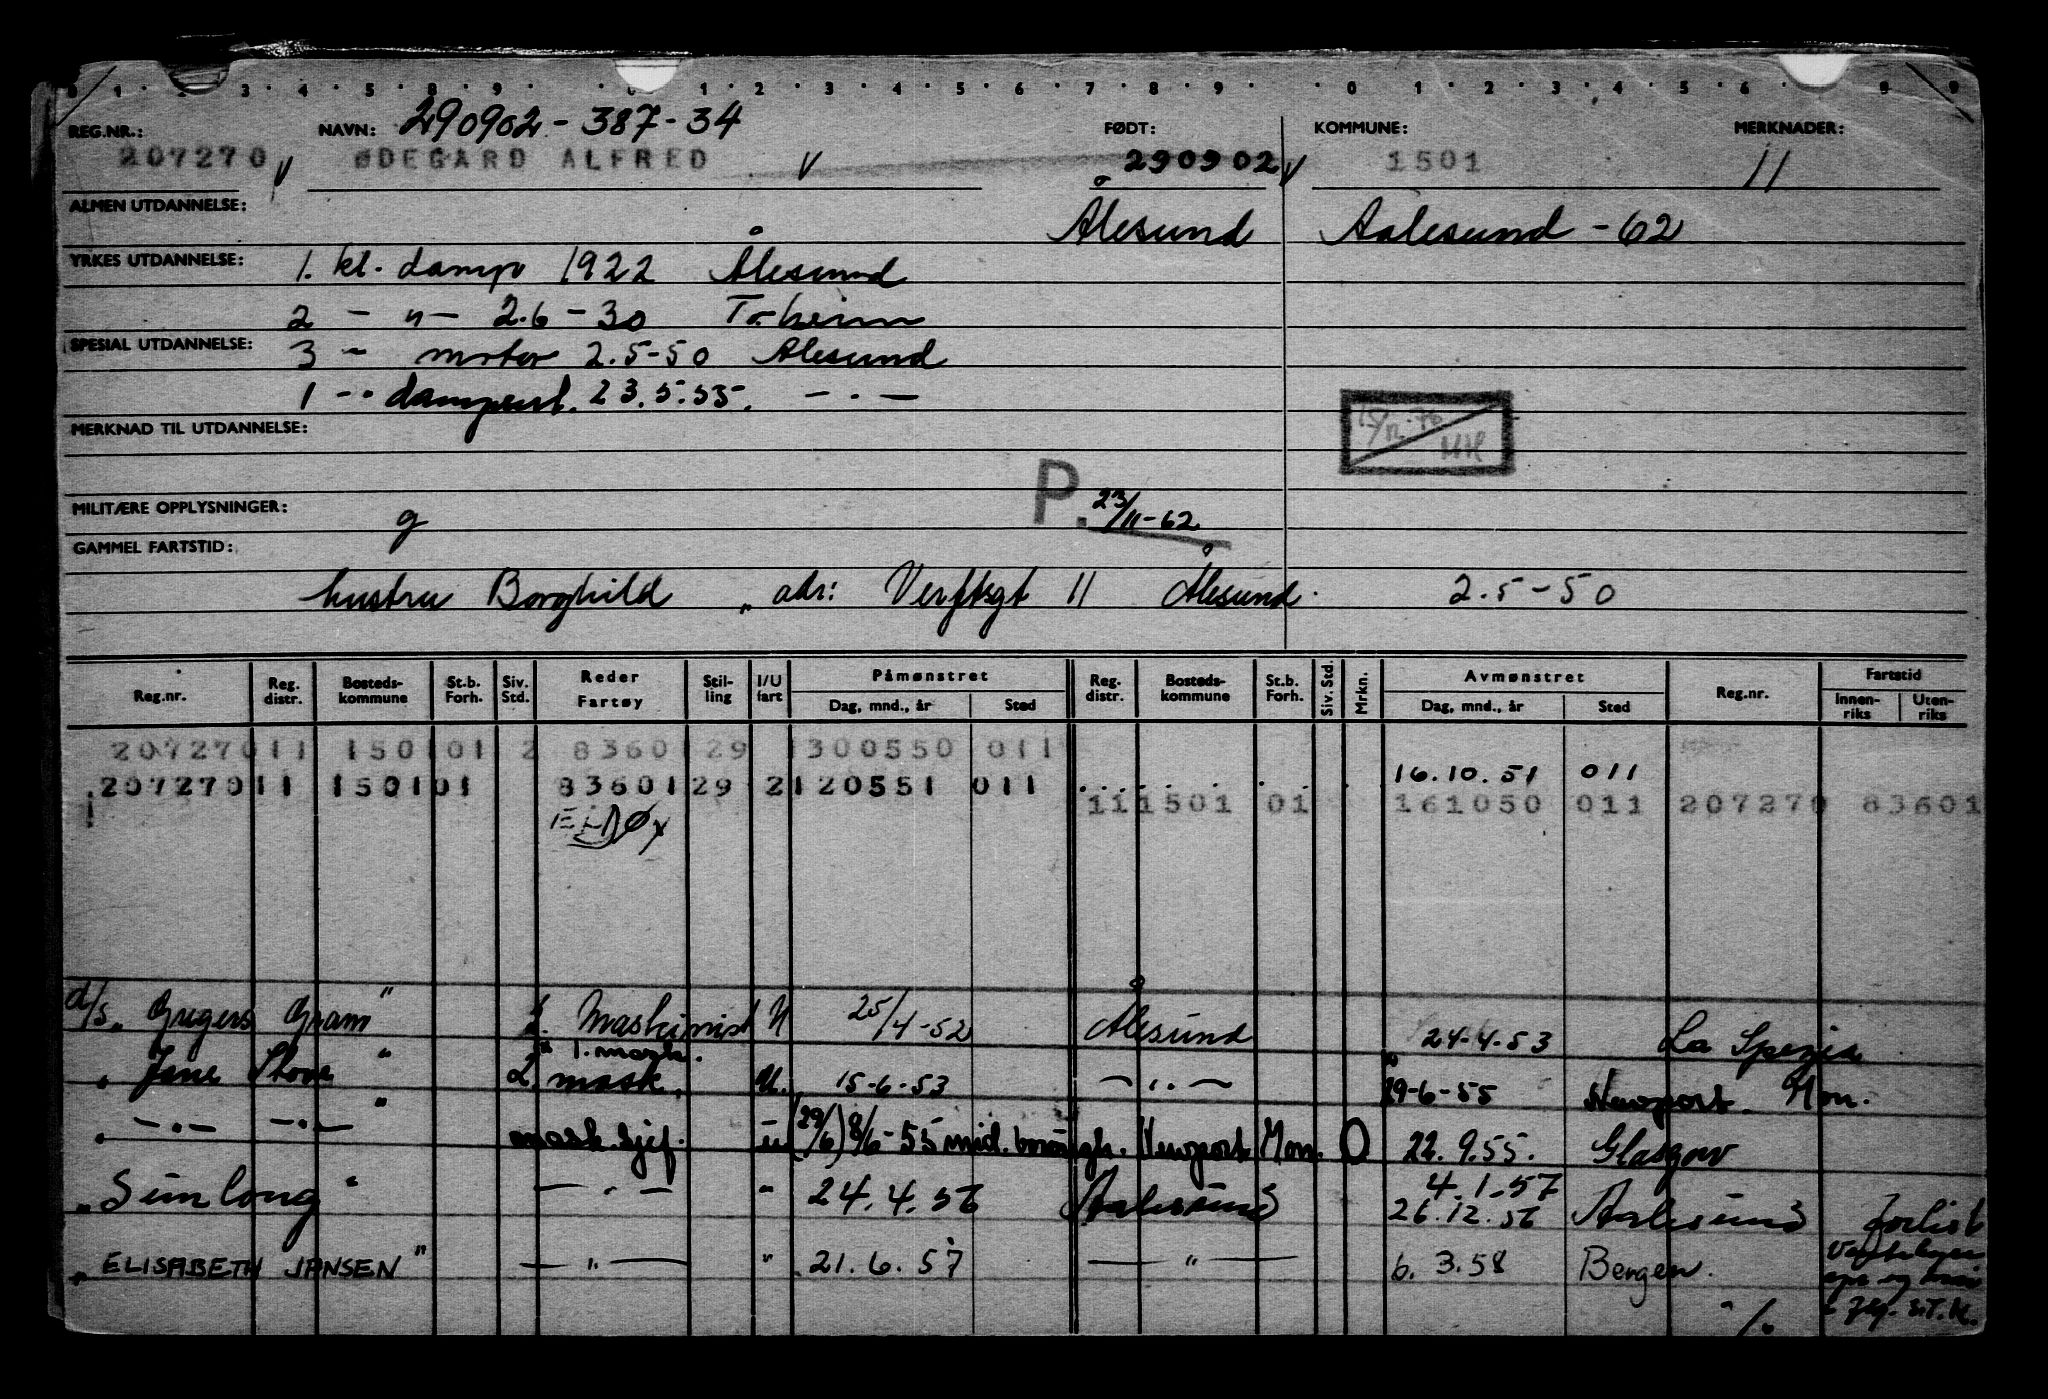 0 1 2 3 4 5 6 7 8 9 0 1 2 3 4 5 6 7 8 9 0 1 2 3 4 5 6 8 9
REG.NR.: NAVN: 290902-387-34 FØDT: KOMMUNE: MERKNADER:
207270 V ØDEGARD ALFRED V 290902 V 1501 11
ALMEN UTDANNELSE: Ålesund Aalesund - 62
YRKES UTDANNELSE: 1. kl. damp 1922 Ålesund
2 - " - 2.6-30 Tr.heim
SPESIAL UTDANNELSE: 3 - motor 2.5-50 Ålesund
1 - " dampsert. 23.5.55. - " -
MERKNAD TIL UTDANNELSE: 15/12-70 MH
MILITÆRE OPPLYSNINGER: g P. 23/11-62
GAMMEL FARTSTID:
hustru Borghild " adr: Verftsgt 11 Ålesund. 2.5-50
Reg.nr. Reg. distr. Bosteds-kommune St.b. Forh. Siv. Std. Reder Fartøy Stil-ling I/U fart Påmønstret Dag, mnd., år Sted Reg. distr. Bosteds-kommune St.b. Forh. Siv. Std. Mrkn. Avmønstret Dag, mnd., år Sted Reg.nr. Fartstid Innen-riks Uten-riks
207270 11 1501 01 2 8360 29 1 300550 011
207270 11 1501 01 83601 29 2 120551 011 16.10.51 011
11 1501 01 161050 011 207270 83601
ELDØY
d/s "Gregers Gram" 2. Maskinist U 25/4-52 Ålesund 24-4-53 La Spezia
1. mask.
"Jane Stove" 2. mask. U. 15-6-53 - " - 29-6-55 Newport. Mon.
" - " - - " - " mask.sjef. u (29/6) 8/6-55 mid. Newport Mon. 0 22.9.55. Glasgow
4.1.57
"Sunlong" - " - " 24.4.56 Aalesund 26.12.56 Aalesund forlist
"ELISABETH JANSEN" - " - " 21.6.57 - " - 6.3.58 Bergen.